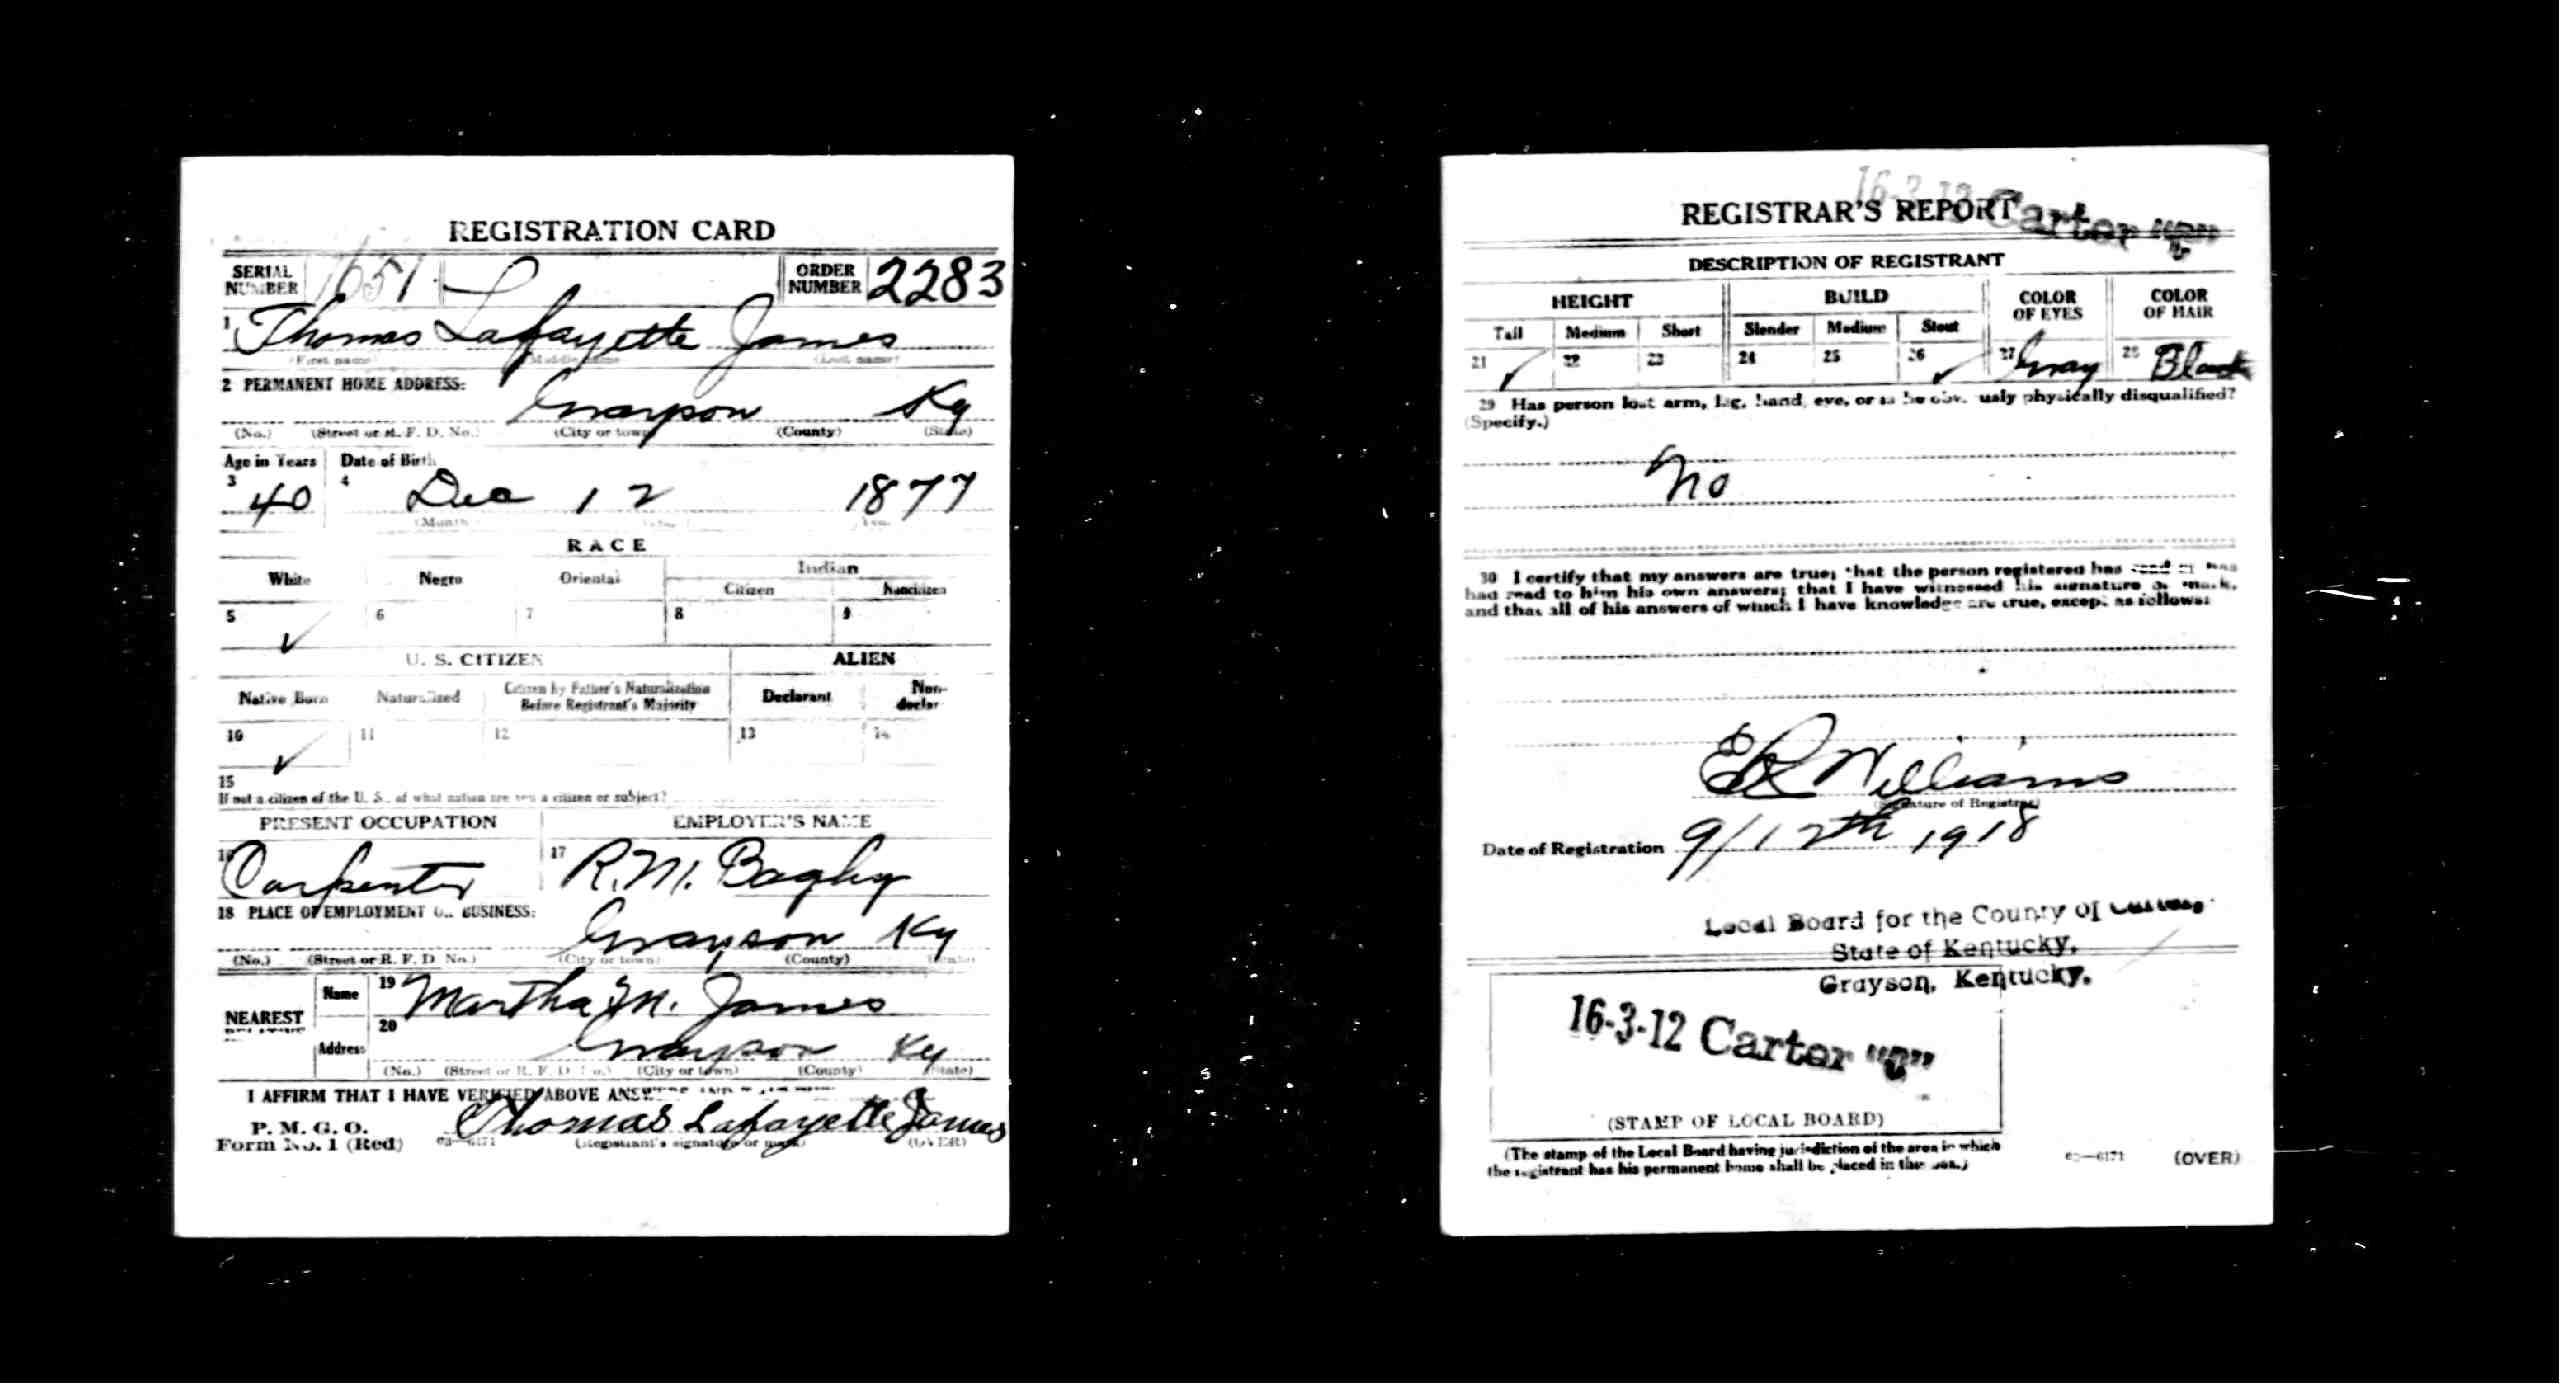 REGISTRATION CARD
SERIAL NUMBER 1651 ORDER NUMBER 2283
1 Thomas Lafayette James
(First name) (Middle name) (Last name)
2 PERMANENT HOME ADDRESS:
Grayson Ky
(No.) (Street or R. F. D. No.) (City or town) (County) (State)
Age in Years Date of Birth
3 40 4 Dec 12 1877
(Month)
RACE
White Negro Oriental Indian
Citizen Noncitizen
5 ✓ 6 7 8 9
U. S. CITIZEN ALIEN
Native Born Naturalized Citizen by Father's Naturalization Before Registrant's Majority Declarant Non-declar
10 ✓ 11 12 13 14
15
If not a citizen of the U. S., of what nation are you a citizen or subject?
PRESENT OCCUPATION EMPLOYER'S NAME
16 Carpenter 17 R. M. Bagby
18 PLACE OF EMPLOYMENT OR BUSINESS:
Grayson Ky
(No.) (Street or R. F. D. No.) (City or town) (County)
NEAREST Name 19 Martha M. James
Address 20 Grayson Ky
(No.) (Street or R. F. D. No.) (City or town) (County) (State)
I AFFIRM THAT I HAVE VERIFIED ABOVE
P. M. G. O.
Form No. 1 (Red) 03—6171 Thomas Lafayette James
(Registrant's signature or mark) (OVER)
16-3-12 Carter "C"
REGISTRAR'S REPORT
DESCRIPTION OF REGISTRANT
HEIGHT BUILD COLOR OF EYES COLOR OF HAIR
Tall Medium Short Slender Medium Stout
21 ✓ 22 23 24 25 26 ✓ 27 Gray 28 Black
29 Has person lost arm, leg, hand, eye, or is he obv. ualy physically disqualified?
(Specify.)
No
30 I certify that my answers are true; that the person registered has read or has
had read to him his own answers; that I have witnessed his signature or mark,
and that all of his answers of which I have knowledge are true, except as follows:
E R Williams
(Signature of Registrar)
Date of Registration 9/12th 1918
Local Board for the County of
State of Kentucky,
Grayson, Kentucky.
16-3-12 Carter "C"
(STAMP OF LOCAL BOARD)
(The stamp of the Local Board having jurisdiction of the area in which
the registrant has his permanent home shall be placed in this box.)
03—6171 (OVER)